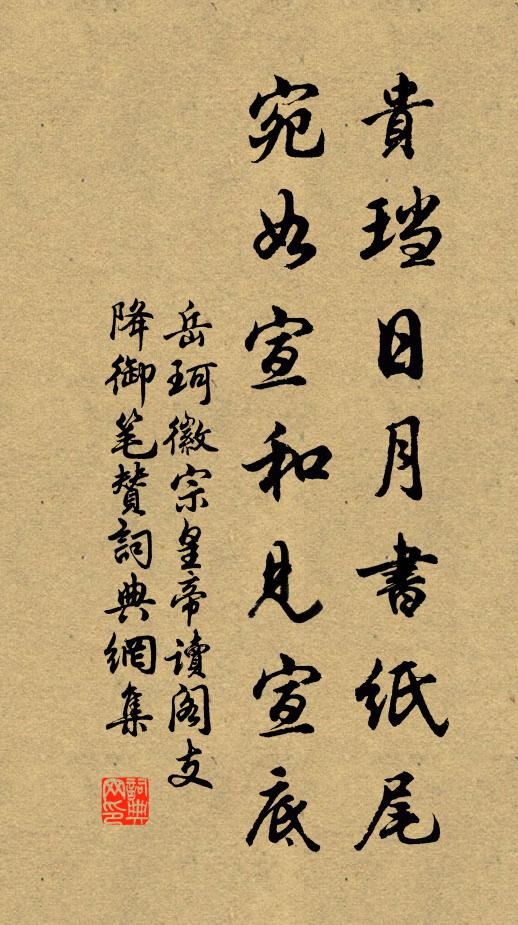 貴璫日月書紙尾
宛如宣和見宣底
岳珂徽宗皇帝讀閣支
降御笔贊詞典網集
詞典
网印